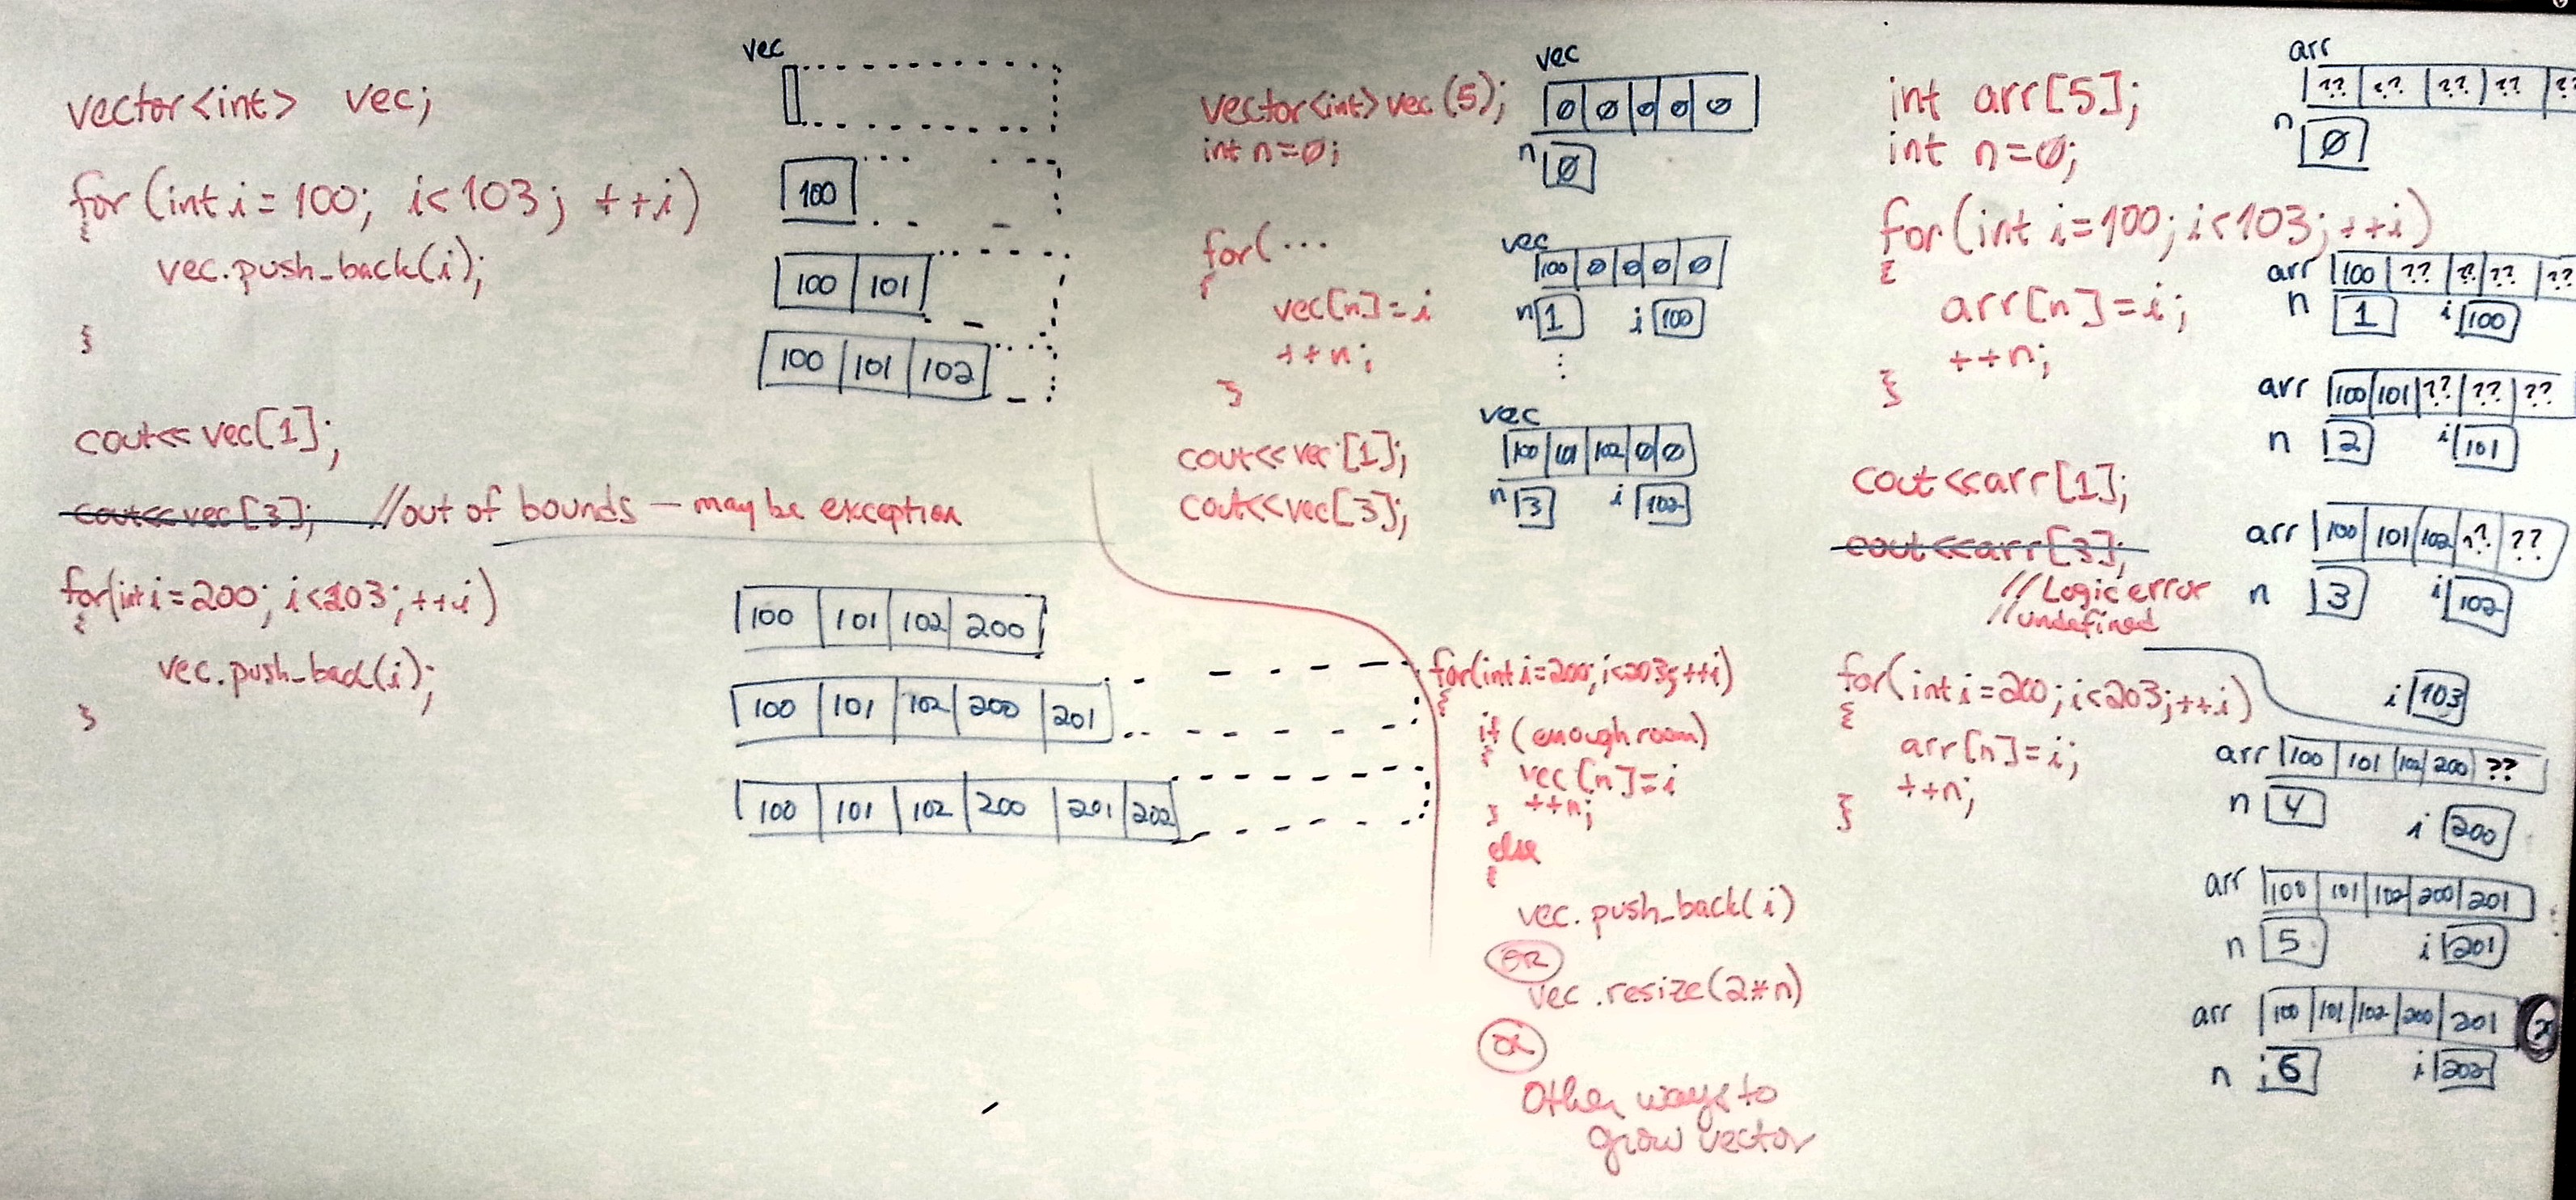 vector<int> vec;
for (int i = 100; i<103; ++i)
{
vec.push_back(i);
}
cout<< vec[1];
cout<< vec[3]; //out of bounds — may be exception
for(int i=200; i<203; ++i)
{
vec.push_back(i);
}
vec
100
100 101
100 101 102
100 101 102 200
100 101 102 200 201
100 101 102 200 201 202
vector<int> vec (5);
int n=0;
for( ...
{
vec[n]=i
++n;
}
cout<< vec [1];
cout<<vec[3];
vec
0 0 0 0 0
n 0
vec
100 0 0 0 0
n 1 i 100
⋮
vec
100 101 102 0 0
n 3 i 102
for(int i=200; i<203; ++i)
{
if (enough room)
{
vec [n]=i
++n;
}
else
{
vec.push_back(i)
OR
vec .resize(2*n)
OR
Other ways to
grow vector
int arr[5];
int n=0;
for(int i=100; i<103; ++i)
{
arr[n]=i;
++n;
}
cout<<arr[1];
cout<<arr[3];
//Logic error
//undefined
for(int i=200; i<203; ++i)
{
arr[n]=i;
++n;
}
arr
?? ?? ?? ?? ??
n 0
arr 100 ?? ?? ?? ??
n 1 i 100
arr 100 101 ?? ?? ??
n 2 i 101
arr 100 101 102 ?? ??
n 3 i 102
i 103
arr 100 101 102 200 ??
n 4 i 200
arr 100 101 102 200 201
n 5 i 201
arr 100 101 102 200 201
n 6 i 202